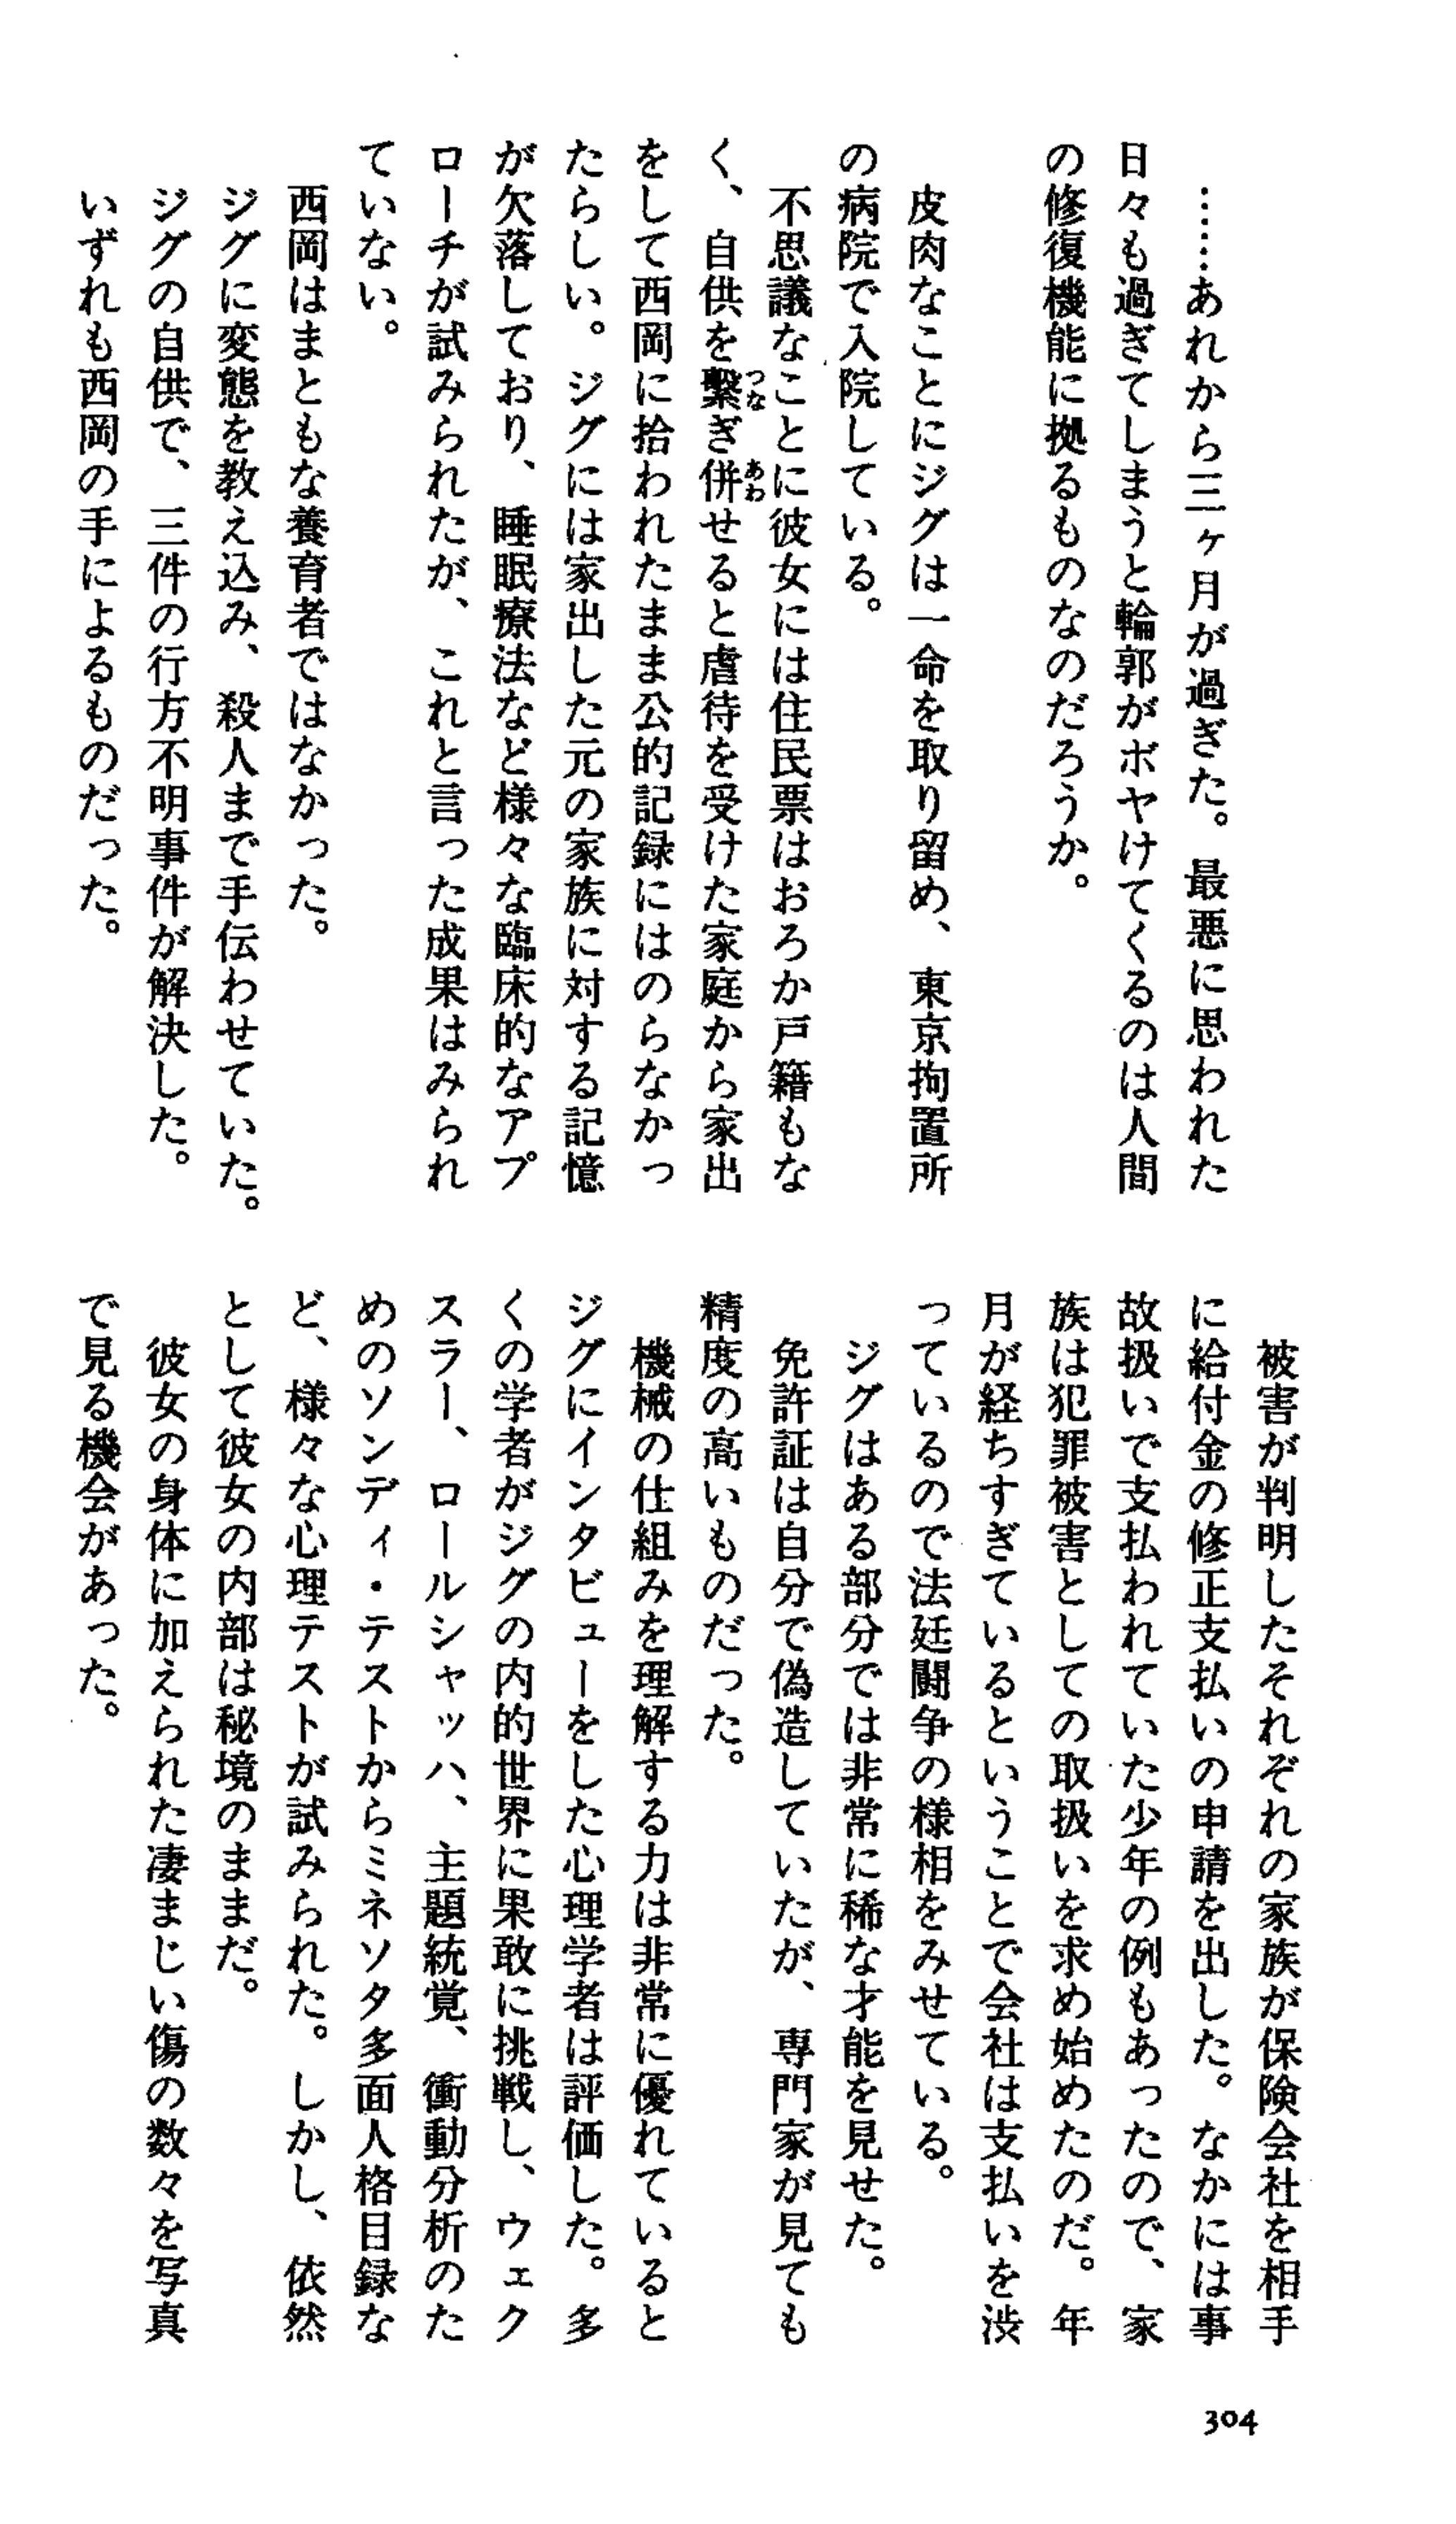 ……あれから三ヶ月が過ぎた。最悪に思われた
日々も過ぎてしまうと輪郭がボヤけてくるのは人間
の修復機能に拠るものなのだろうか。
皮肉なことにジグは一命を取り留め、東京拘置所
の病院で入院している。
不思議なことに彼女には住民票はおろか戸籍もな
く、自供を繋ぎ併せると虐待を受けた家庭から家出
をして西岡に拾われたまま公的記録にはのらなかっ
たらしい。ジグには家出した元の家族に対する記憶
が欠落しており、睡眠療法など様々な臨床的なアプ
ローチが試みられたが、これと言った成果はみられ
ていない。
西岡はまともな養育者ではなかった。
ジグに変態を教え込み、殺人まで手伝わせていた。
ジグの自供で、三件の行方不明事件が解決した。
いずれも西岡の手によるものだった。
被害が判明したそれぞれの家族が保険会社を相手
に給付金の修正支払いの申請を出した。なかには事
故扱いで支払われていた少年の例もあったので、家
族は犯罪被害としての取扱いを求め始めたのだ。年
月が経ちすぎているということで会社は支払いを渋
っているので法廷闘争の様相をみせている。
ジグはある部分では非常に稀な才能を見せた。
免許証は自分で偽造していたが、専門家が見ても
精度の高いものだった。
機械の仕組みを理解する力は非常に優れていると
ジグにインタビューをした心理学者は評価した。多
くの学者がジグの内的世界に果敢に挑戦し、ウェク
スラー、ロールシャッハ、主題統覚、衝動分析のた
めのソンディ・テストからミネソタ多面人格目録な
ど、様々な心理テストが試みられた。しかし、依然
として彼女の内部は秘境のままだ。
彼女の身体に加えられた凄まじい傷の数々を写真
で見る機会があった。
304